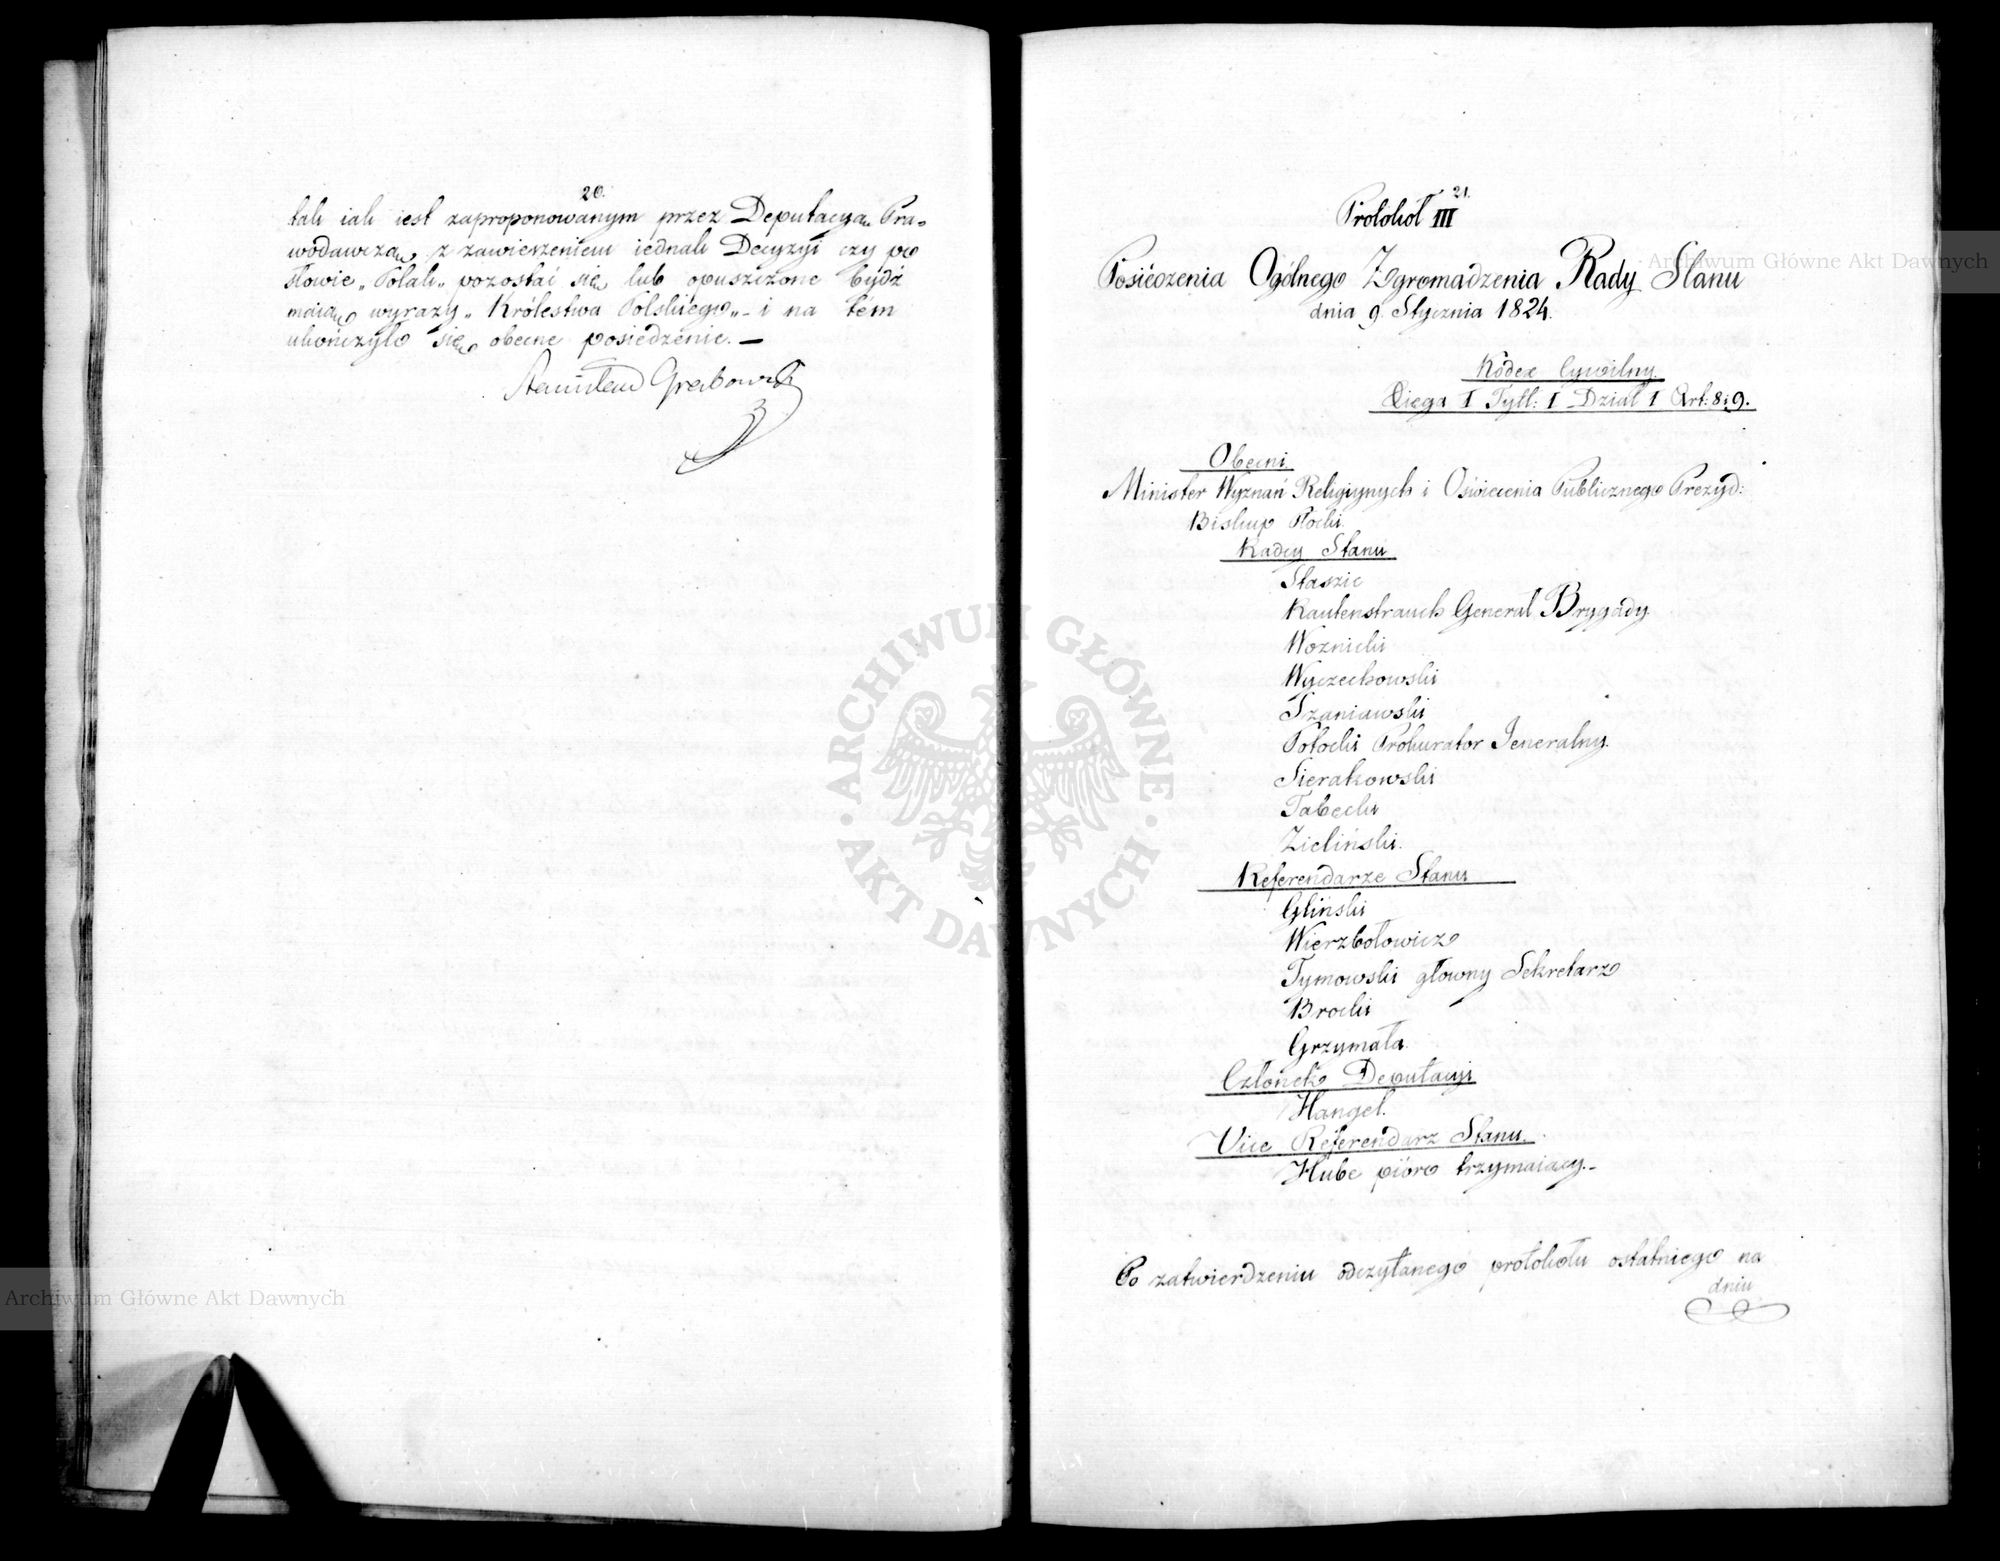 20.
tak iak iest zaproponowanym przez Deputacyą Pra-
wodawczą, z zawieszeniem iednak Decyzyi czy po
słowie „Polak„ pozostać się lub opuszczone bydź
maią wyrazy „Królestwa Polskiego„ - i na tém
ukończyło się obecne posiedzenie. —
Stanisław Grabowski
21.
Protokół III
Posiedzenia Ogólnego Zgromadzenia Rady Stanu
dnia 9. Stycznia 1824.
Kodex Cywilny.
Xięga I Tytł: I - Dział 1 Art: 8 i 9.
Obecni.
Minister Wyznań Religiynych i Oświecenia Publicznego Prezyd:
Biskup Płocki.
Radcy Stanu
Staszic
Rautenstrauch Generał Brygady.
Woznicki
Wyczechowski
Szaniawski
Potocki Prokurator Jeneralny.
Sierakowski
Tabecki
Zieliński.
Referendarze Stanu
Gliński
Wierzbołowicz
Tymowski głowny Sekretarz
Brocki
Grzymała.
Członek Deputacyi
Hangel.
Vice Referendarz Stanu.
Hube pióro trzymaiący.-
Po zatwierdzeniu odczytanego protokołu ostatniego na
dniu
Archiwum Główne Akt Dawnych
Archiwum Główne Akt Dawnych
ARCHIWUM GŁÓWNE
AKT DAWNYCH